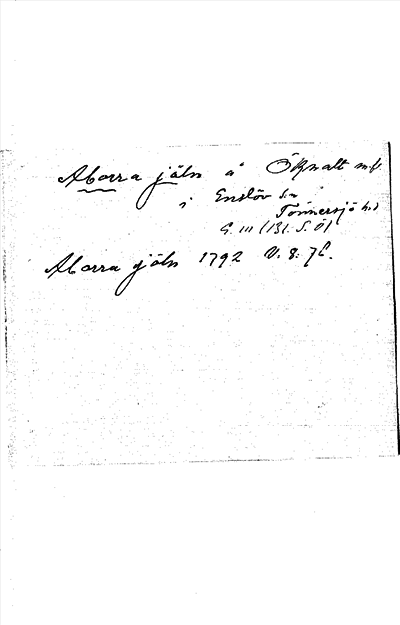 Aborra jäln å Öknalt
i Enslöv sn
Tönnersjö hd
G. III (131 S. Ö)
Aborra gjöln 1792 V. 8: 76.